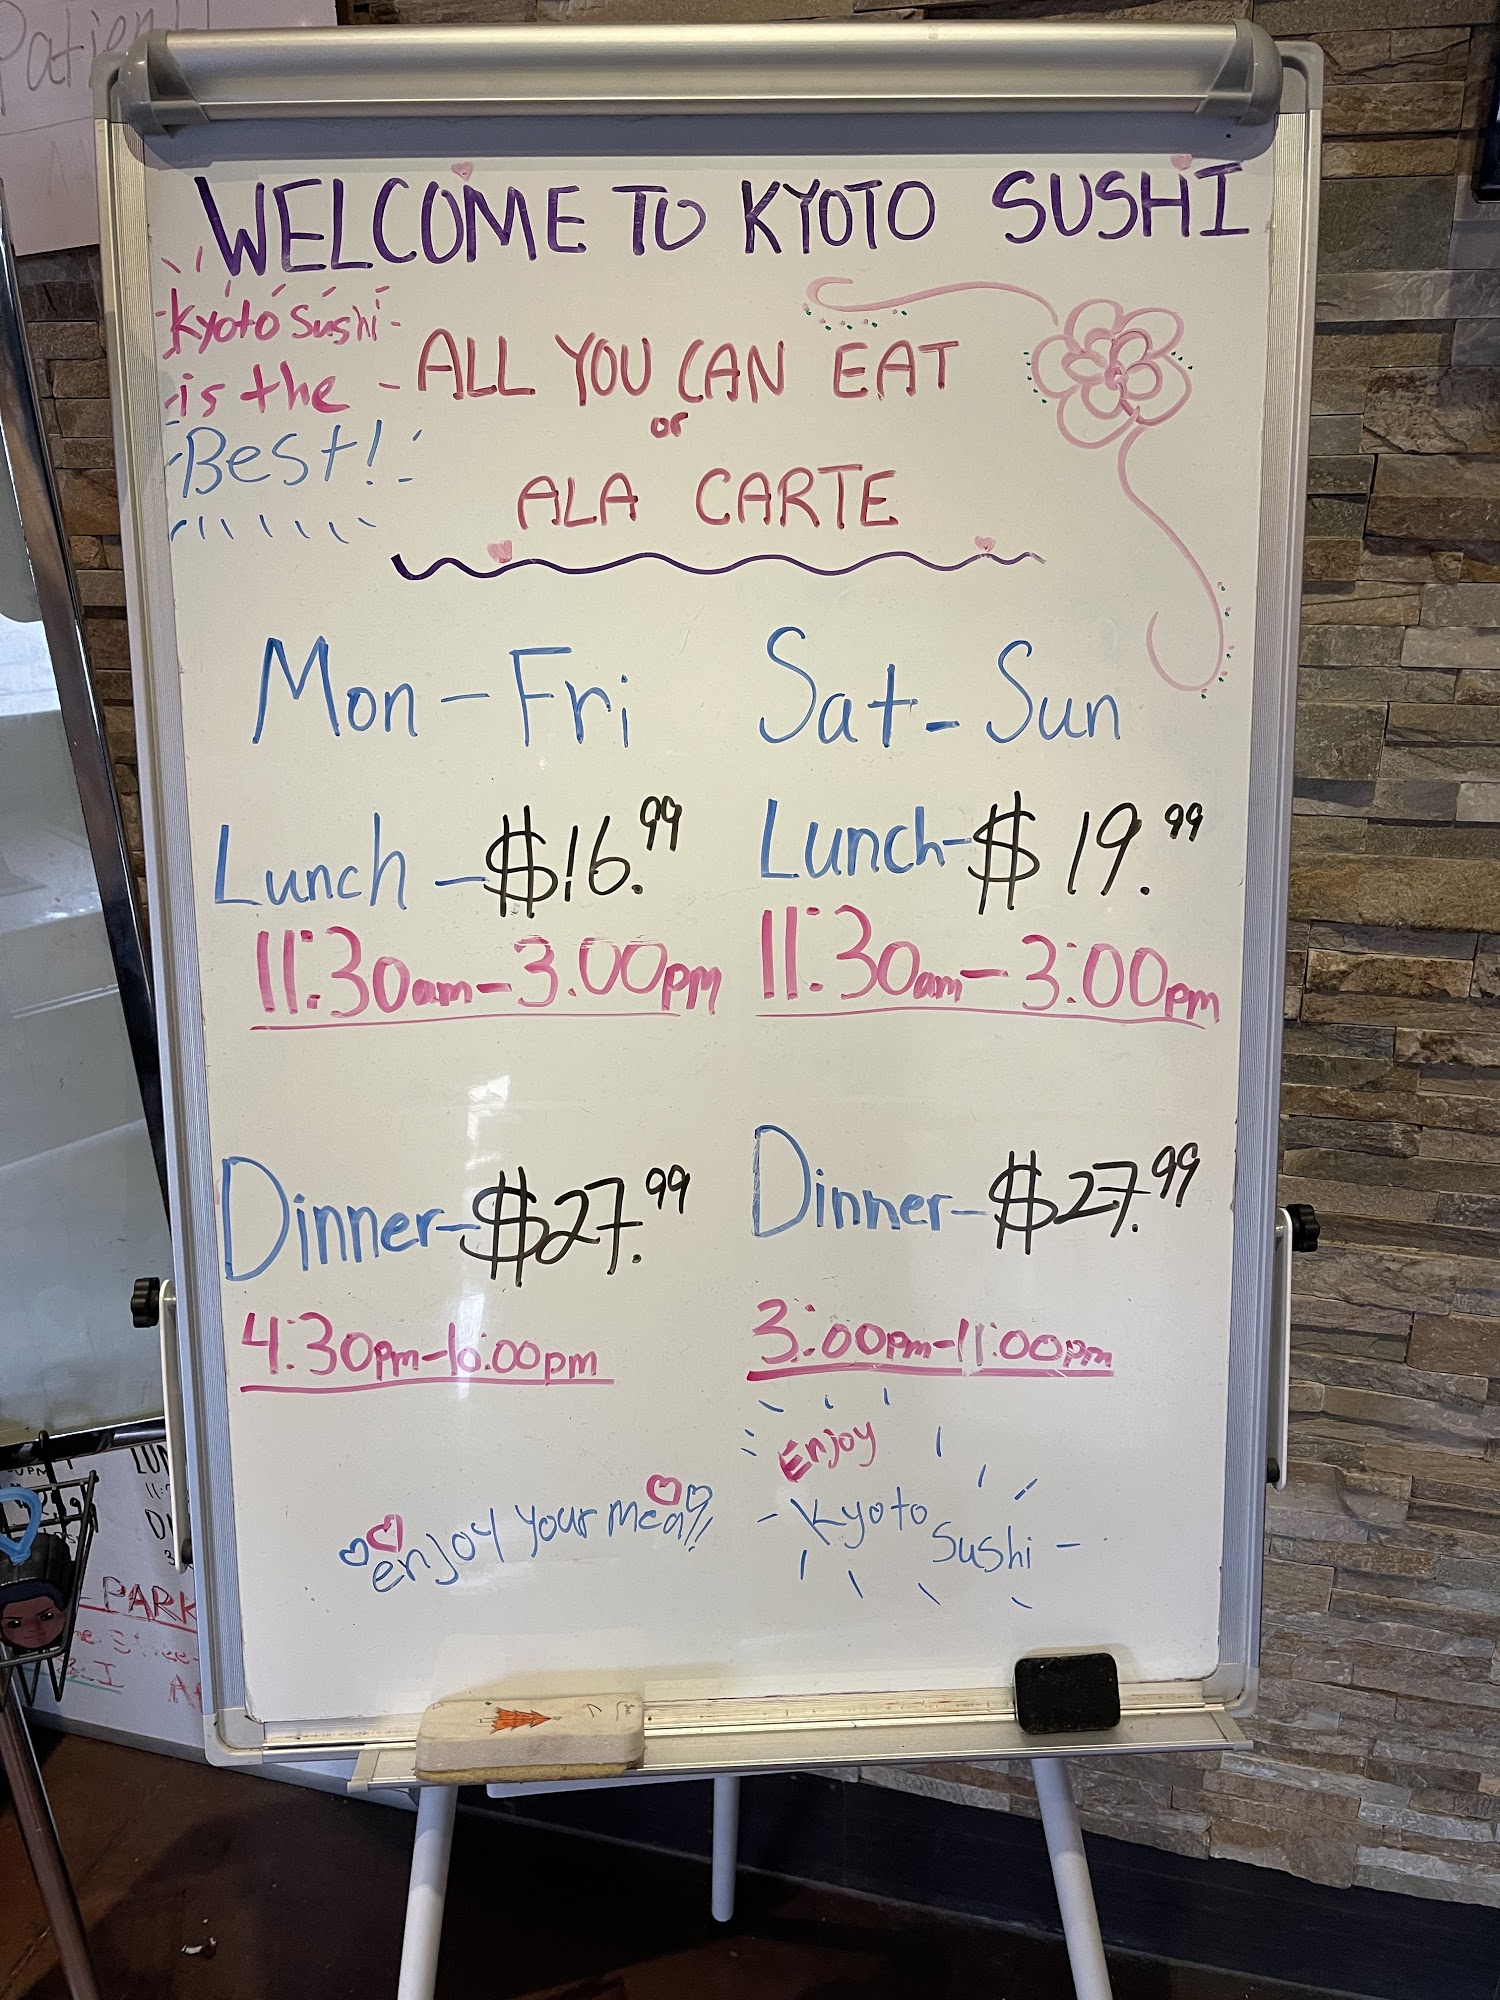 Patien
WELCOME TO KYOTO SUSHI
Kyoto Sushi
is the
Best!
ALL YOU CAN EAT
or
ALA CARTE
Mon - Fri
Lunch - $16.99
11:30am - 3:00pm
Dinner - $27.99
4:30pm - 10:00pm
Sat - Sun
Lunch - $19.99
11:30am - 3:00pm
Dinner - $27.99
3:00pm - 11:00pm
enjoy your meal!!
Enjoy
Kyoto
Sushi
LUN
PARK